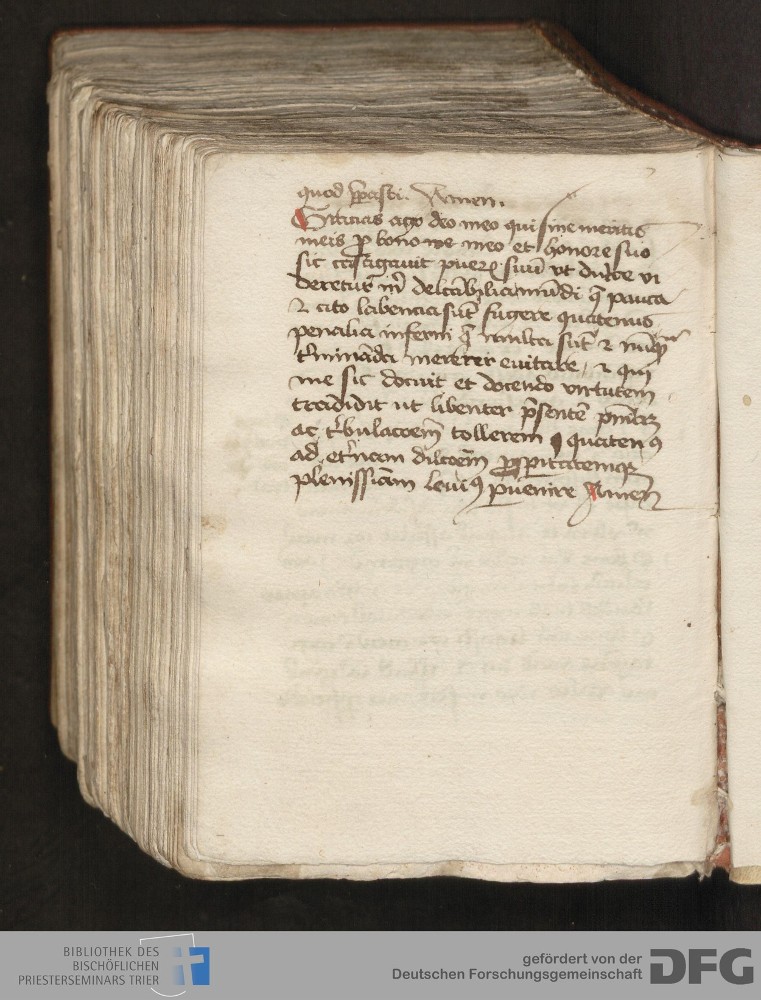 quod p̱casti. Amen.
Gracias ago deo meo qui sine meritis
meis p̱ bono me meo et honore suo
sic castigauit pueꝝ suū vt dulce vi
deretur m̄ delcābilia mūdi q̄ pauca
⁊ cito labencia sūt fugere quatenus
penalia inferni q̄ multa sūt ⁊ nūq̄
t̄mināda mererer euitare, ⁊ qui
me sic docuit et docendo virtutem
tradidit ut libenter p̄sentē
ac t̄bulacoēm tollerem quatenꝯ
ad et̄nam dilcoēm ꝓsp̱itatemqꝫ
plenissiām leuiꝯ p̱uenire Amen
BIBLIOTHEK DES
BISCHÖFLICHEN
PRIESTERSEMINARS TRIER
gefördert von der
Deutschen Forschungsgemeinschaft
DFG